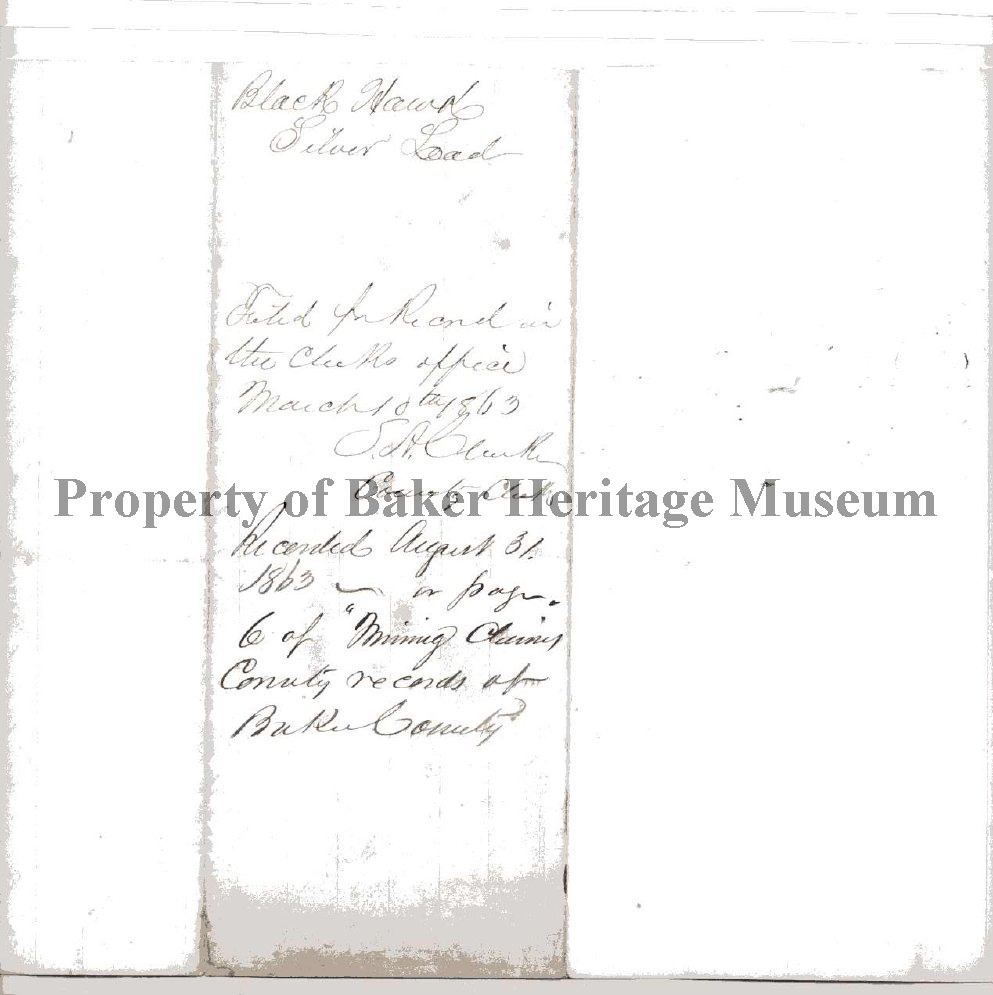 Black Hawk
Silver Lead
Filed for Record in
the Clerks office
March 10th 1863
S. A. Clarke
County Clerk
Property of Baker Heritage Museum
Recorded August 31.
1863 — on page
6 of "Mining Claims
County records of
Baker County"